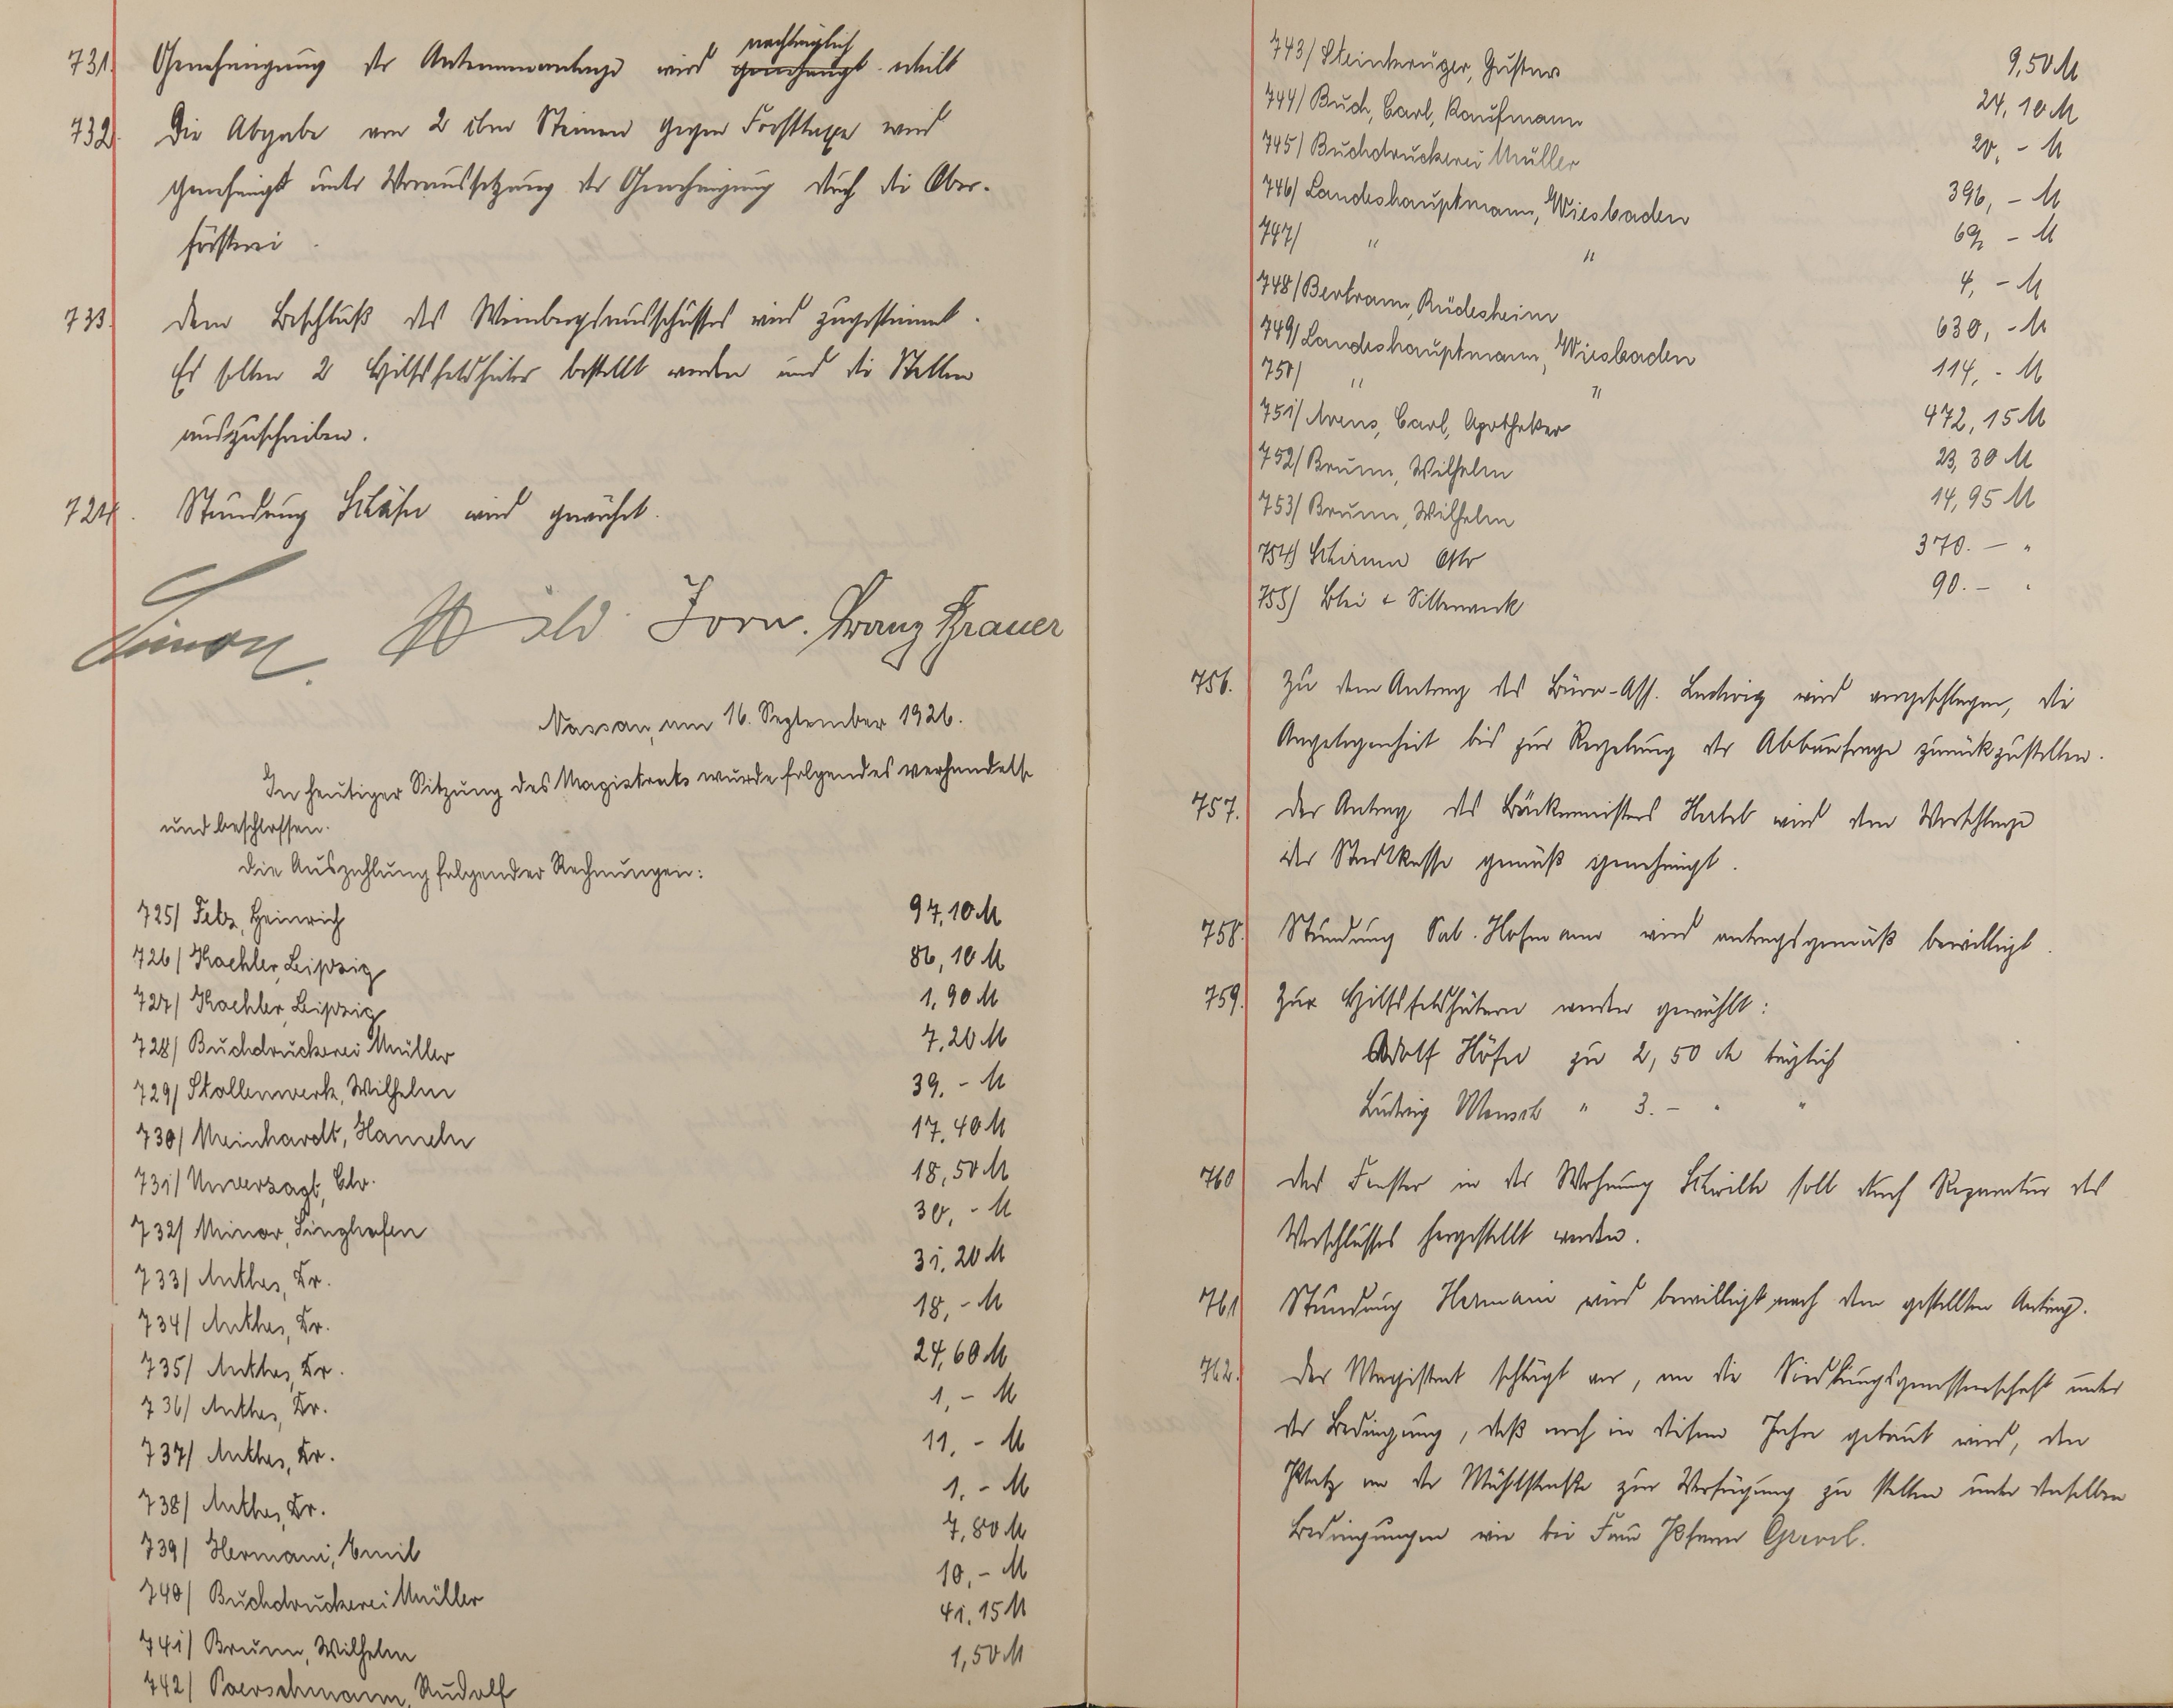 731. Genehmigung der Antennenanlage wird nachträglich genehmigt erteilt
732. Die Abgabe von 2 cbm Steinen gegen Forsttaxe wird
genehmigt unter Voraussetzung der Genehmigung durch die Ober-
försterei.
733. Dem Beschluß des Weinbergsausschusses wird zugestimmt.
Es sollen 2 Hilfsfeldhüter bestellt werden und die Stellen
auszuschreiben.
724. Stundung Schäfer wird gewährt.
Simon. Jorn. Franz Brauer
Nassau, am 16. September 1926.
In heutiger Sitzung des Magistrats wurde folgendes verhandelt
und beschlossen.
Die Auszahlung folgender Rechnungen:
725/ Felz, Heinrich 97,10 M
726/ Koehler, Leipzig 86,10 M
727/ Koehler, Leipzig 1,90 M
728/ Buchdruckerei Müller 7,20 M
729/ Stollenwerk, Wilhelm 39,- M
730/ Meinhardt, Hameln 17,40 M
731/ Unverzagt, Chr. 18,50 M
732/ Minor, Singhofen 30,- M
733/ Anthes, Dr. 31,20 M
734/ Anthes, Dr. 18,- M
735/ Anthes, Dr. 24,60 M
736/ Anthes, Dr. 1,- M
737/ Anthes, Dr. 11,- M
738/ Anthes, Dr. 1,- M
739/ Hermani, Emil 7,80 M
740/ Buchdruckerei Müller 10,- M
741/ Brunn, Wilhelm 41,15 M
742/ Poerschmann, Rudolf 1,50 M
743/ Steinkrüger, Gustav 9,50 M
744/ Buch, Carl, Kaufmann 24,10 M
745/ Buchdruckerei Müller 20,- M
746/ Landeshauptmann, Wiesbaden 396,- M
747/ " " 69,- M
748/ Bertram, Rüdesheim 4,- M
749/ Landeshauptmann, Wiesbaden 630,- M
750/ " " 114,- M
751/ Arens, Carl, Apotheker 472,15 M
752/ Brunn, Wilhelm 23,30 M
753/ Brunn, Wilhelm 14,95 M
754) Schirm Otto 370.— "
755) Blei & Silberwerk 90.— "
756. Zu dem Antrag des Büro-Ass. Ludwig wird vorgeschlagen, die
Angelegenheit bis zur Regelung der Abbaufrage zurückzustellen.
757. Der Antrag des Bäckermeisters wird dem Vorschlage
der Stadtkasse gemäß genehmigt.
758. Stundung Seb. Hofmann wird antragsgemäß bewilligt.
759. Zur Hilfsfeldhütern werden gewählt:
Adolf Höfer zu 2,50 M täglich
Ludwig Mensch " 3.- " "
760 Das Fenster in der Wohnung soll durch Reparatur des
Verschlusses hergestellt werden.
761 Stundung Hermani wird bewilligt nach dem gestellten Antrag.
762. Der Magistrat schlägt vor, an die Siedlungsgenossenschaft unter
der Bedingung, daß noch in diesem Jahr gebaut wird, den
Platz an der Mühlstraße zur Verfügung zu stellen unter denselben
Bedingungen wie bei Frau Johann